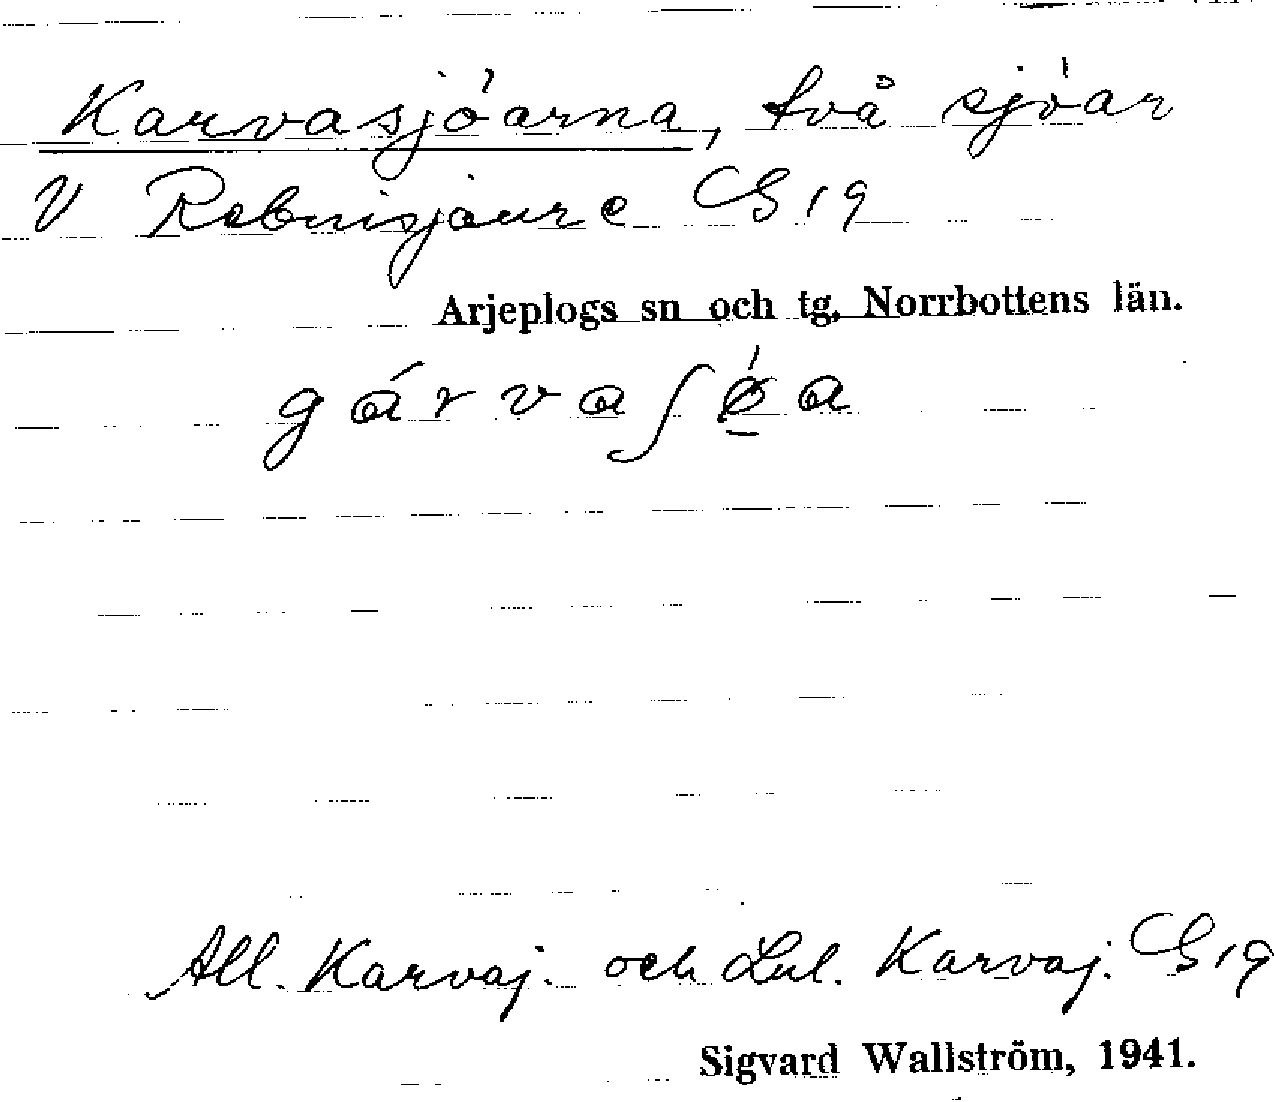 Karvasjöarna, två sjöar
V Rebnisjaure GS 19
Arjeplogs sn och tg. Norrbottens län.
gárvaʃǿ̱a
All. Karvaj. och Lul. Karvaj. GS 19
Sigvard Wallström, 1941.